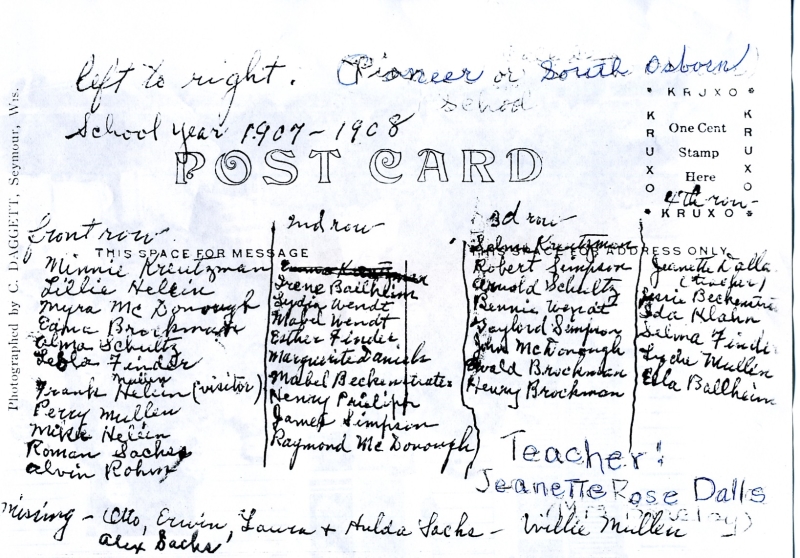 left to right. Pioneer or South Osborn
School
School year 1907-1908
POST CARD
Photographed by C. DAGGETT, Seymour, Wis.
* KRUXO *
KRUXO
One Cent
Stamp
Here
KRUXO
* KRUXO *
THIS SPACE FOR MESSAGE
THIS SPACE FOR ADDRESS ONLY
front row
Minnie Kreutzman
Lillie Helein
Myra Mc Donough
Edna Brockman
Alma Schultz
Leola Finder
Frank Helein (visitor)
Perry Mullen
Mike Helein
Roman Sachs
Alvin Rohm
2nd row
Irene Ballheim
Lydia Wendt
Mabel Wendt
Esther Finder
Marguerite Daniels
Mabel Beckenstrater
Henry Philipp
James Simpson
Raymond Mc Donough
3d row
Selma Kreutzman
Robert Simpson
Arnold Schultz
Bennie Wendt
Gaylord Simpson
John McDonough
Ewald Brockman
Henry Brockman
4th row-
Jeanette Dalla
(teacher)
Ida Klahn
Selma Finder
Lyda Mullen
Ella Ballheim
Teacher:
Jeanette Rose Dalls
Missing - Otto, Erwin, Laura + Hulda Sachs - Willie Mullen
Alex Sachs